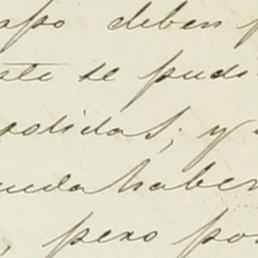 apo deben p
ste se pudi
pedidas; y
ueda haber
, pero por